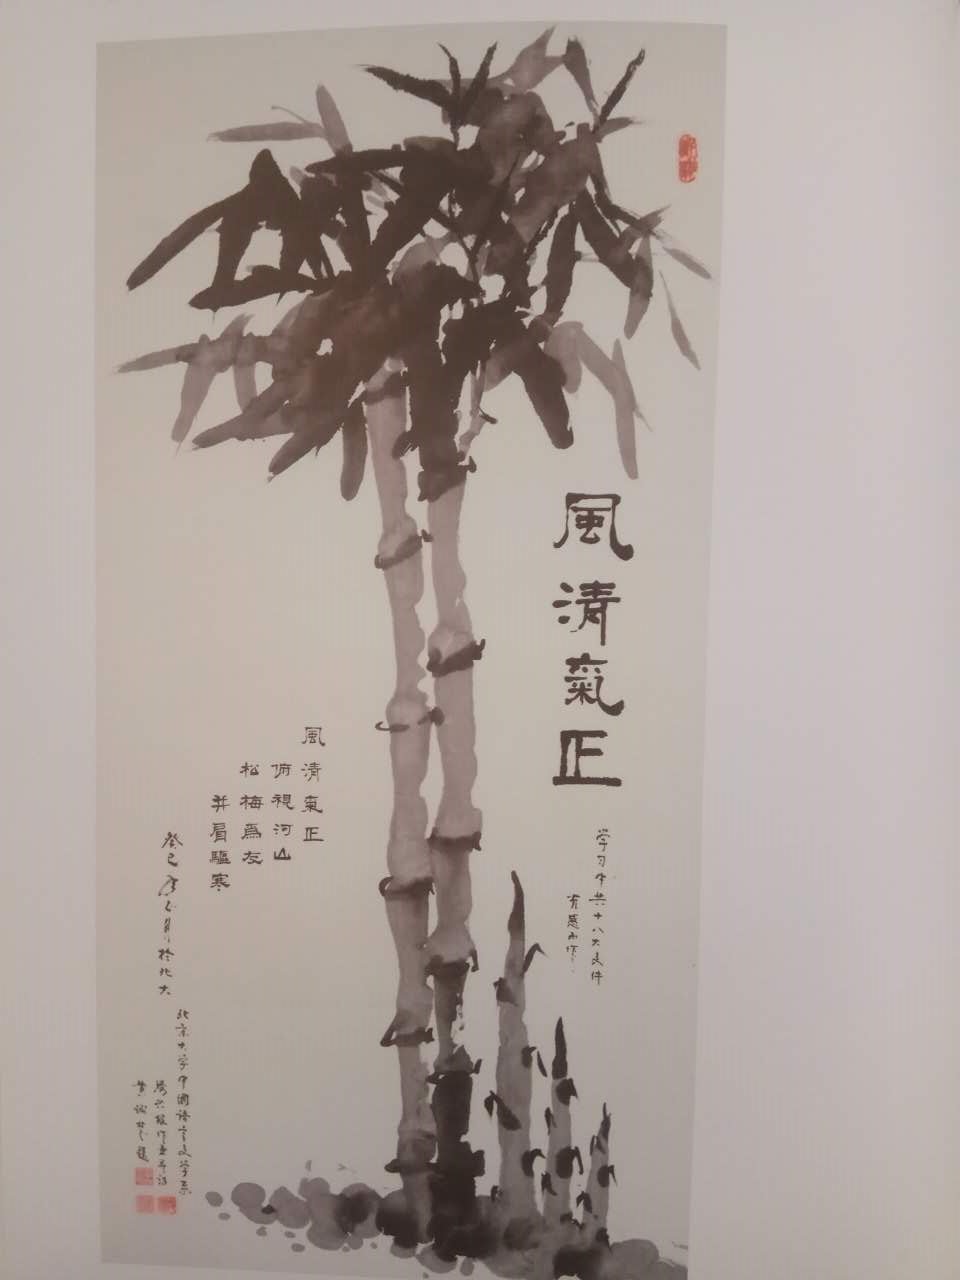 風清氣正
学习中共十八大文件
有感而作
風清氣正
俯視河山
松梅為友
并肩驅寒
癸巳 於北大
北京大学中國語言文学系